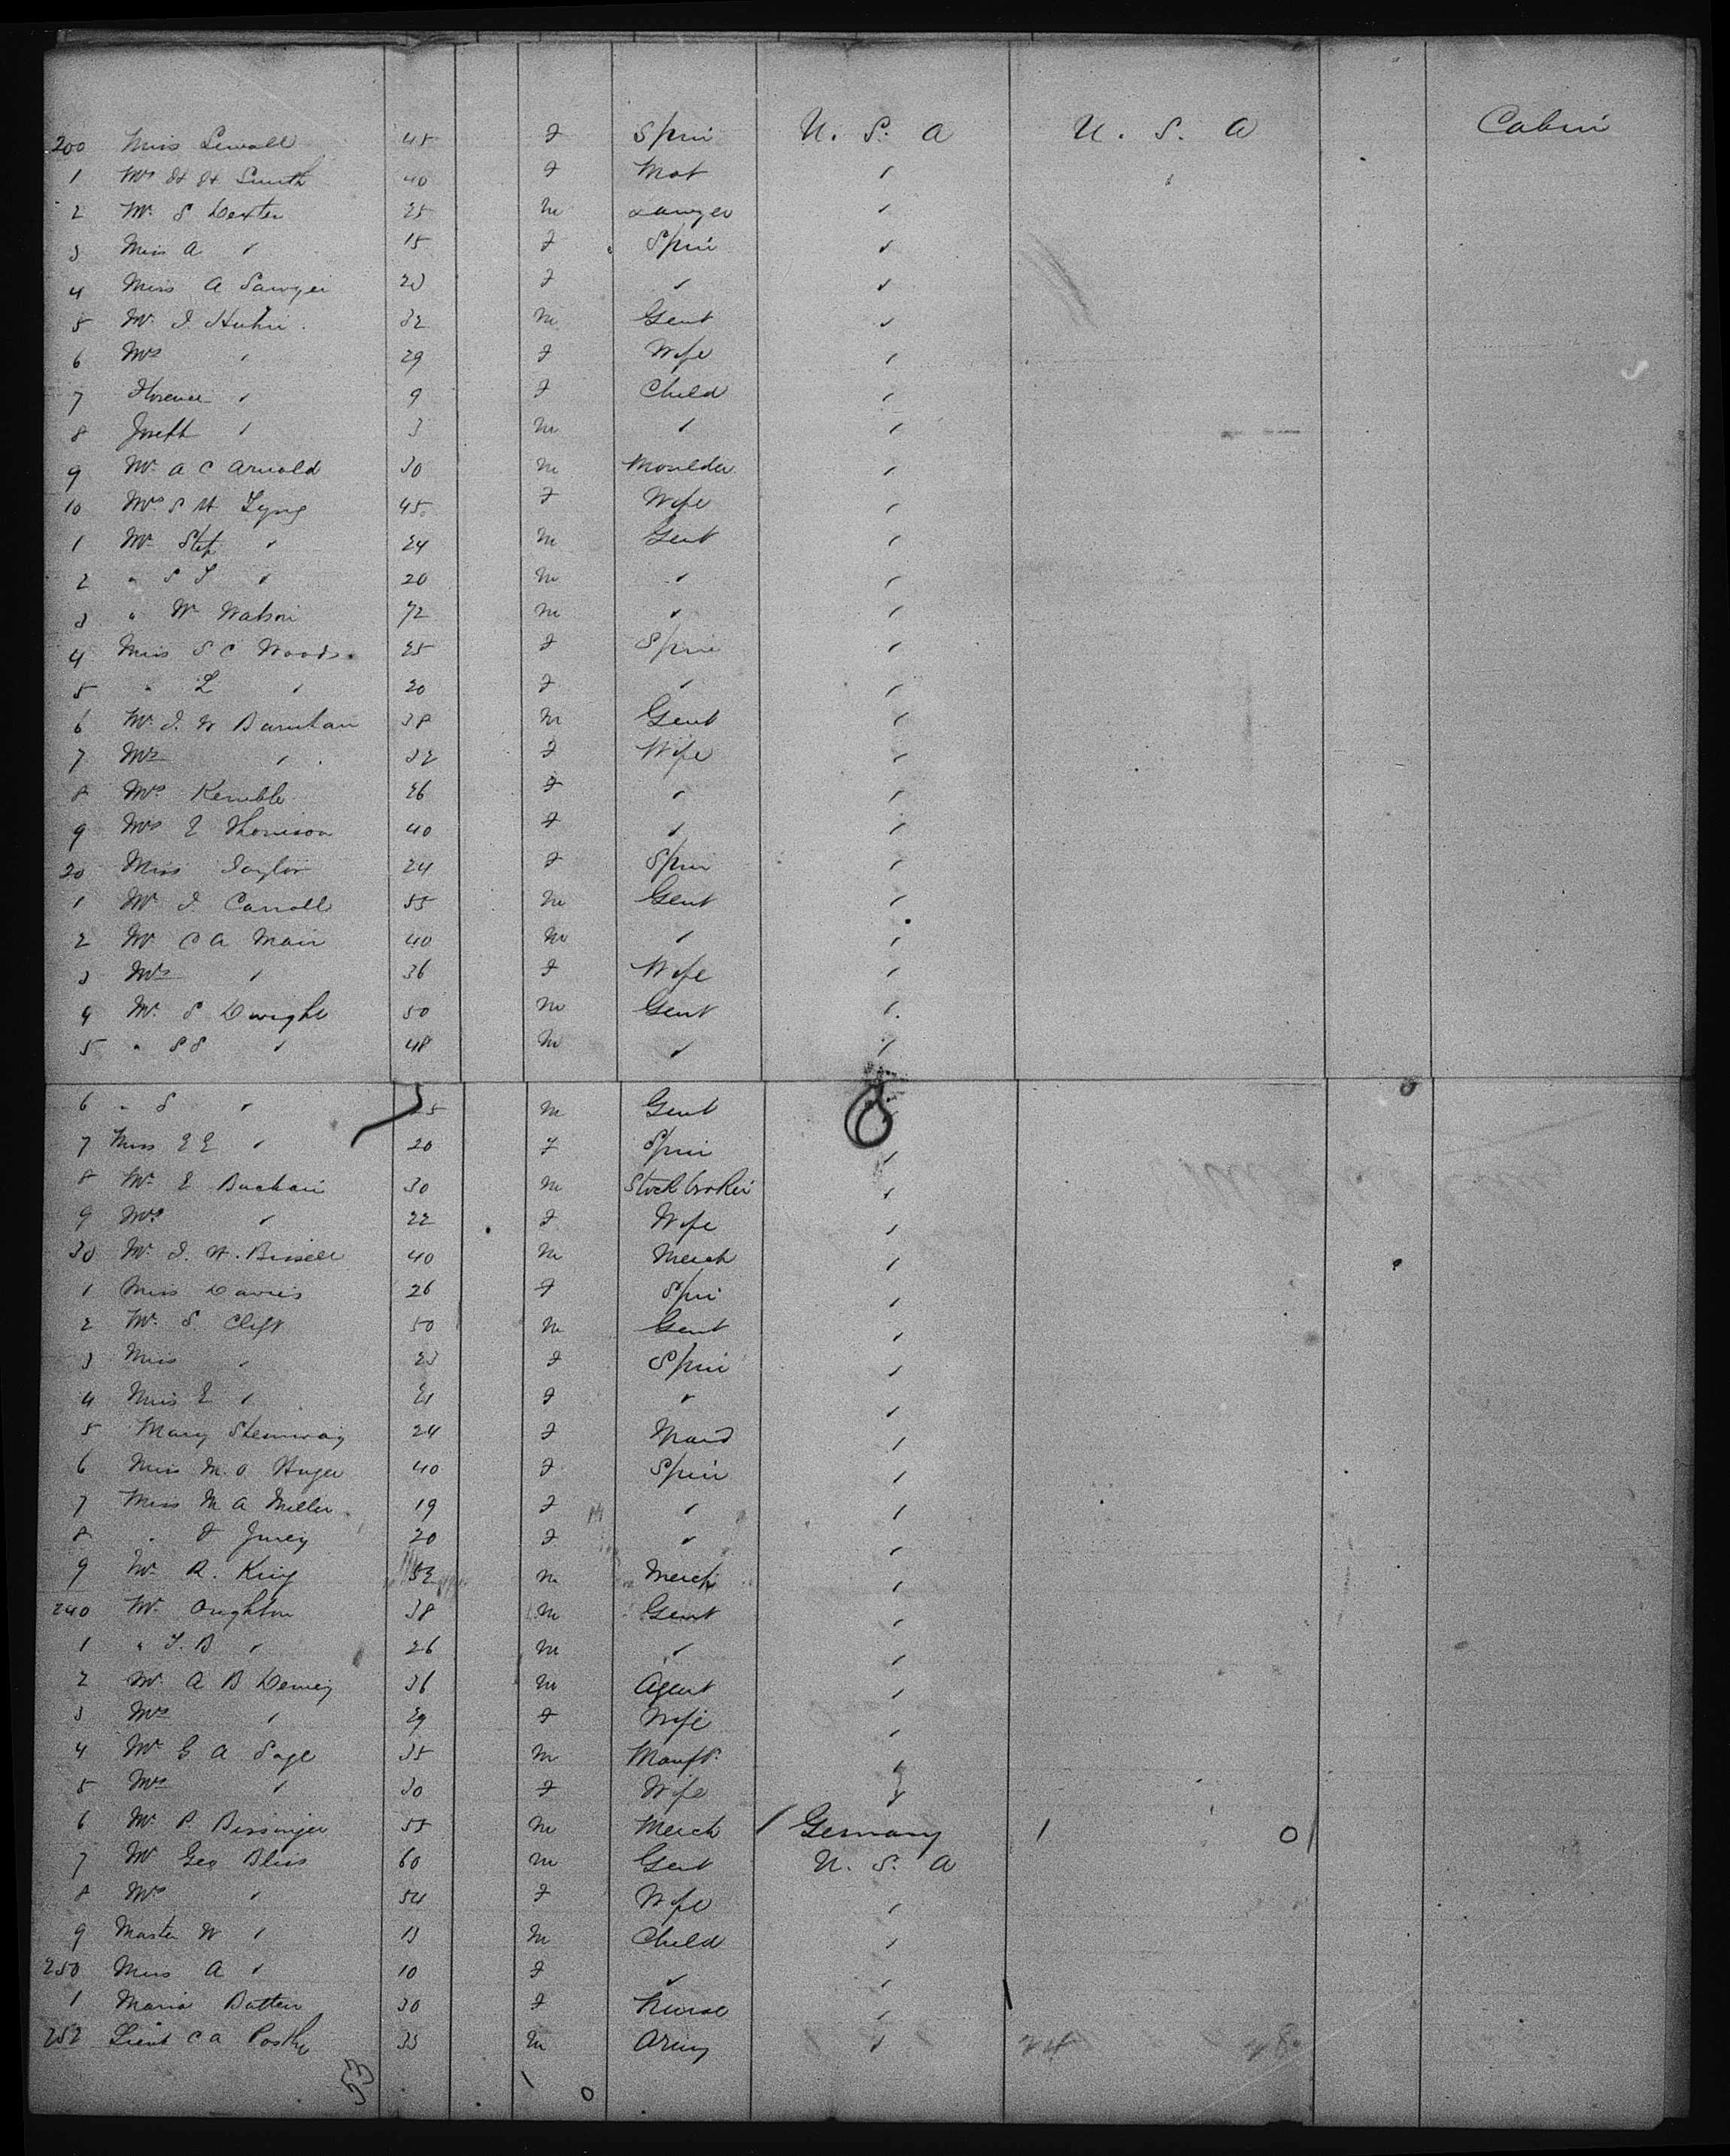 200 Miss Sewall 45 F Spin U. S. A U. S. A Cabin
1 Mrs H H Smith 40 F Mat "
2 Mr S Dexter 25 M Lawyer "
3 Miss A " 15 F Spin "
4 Miss A Sawyer 20 F " "
5 Mr J 32 M Gent "
6 Mrs " 29 F Wife "
7 Florence " 9 F Child "
8 Joseph " 3 M " "
9 Mr A C Arnold 30 M Moulder "
10 Mrs S H Lyng 45 F Wife "
1 Mr Step " 24 M Gent "
2 " S T " 20 M " "
3 " W Watson 72 M " "
4 Miss S C Woods 25 F Spin "
5 " L " 20 F " "
6 Mr J W Barnham 38 M Gent "
7 Mrs " 32 F Wife "
8 Mrs Kemble 26 F " "
9 Mrs E Thomson 40 F " "
20 Miss Taylor 24 F Spin "
1 Mr J Carroll 55 M Gent "
2 Mr C A Main 40 M " "
3 Mrs " 36 F Wife "
4 Mr S Dwight 50 M Gent "
5 " S S " 48 M " "
6 " S " 25 M Gent "
7 Miss E E " 20 F Spin "
8 Mr E 30 M Stockbroker "
9 Mrs " 22 F Wife "
30 Mr J. H. Bissell 40 M Merch "
1 Miss Davies 26 F Spin "
2 Mr S. Clift 50 M Gent "
3 Miss " 23 F Spin "
4 Miss E " 21 F " "
5 Mary Stemway 24 F Maid "
6 Miss M. O Huger 40 F Spin "
7 Miss M A Miller 19 F " "
8 " F Jurey 20 F " "
9 Mr R. King 52 M Merch "
240 Mr Oughton 38 M Gent "
1 " T. B " 26 M " "
2 Mr A B Demey 36 M Agent "
3 Mrs " 29 F Wife "
4 Mr G A Sage 35 M Manfr. "
5 Mrs " 30 F Wife "
6 Mr P. Bissinger 55 M Merch / Germany 1 0
7 Mr Geo Bliss 60 M Gent U. S. A
8 Mrs " 54 F Wife "
9 Master W " 13 M Child "
250 Miss A " 10 F " "
1 Maria Batten 30 F Nurse "
252 Lieut C A 33 M Army " 24 28
53 1 0